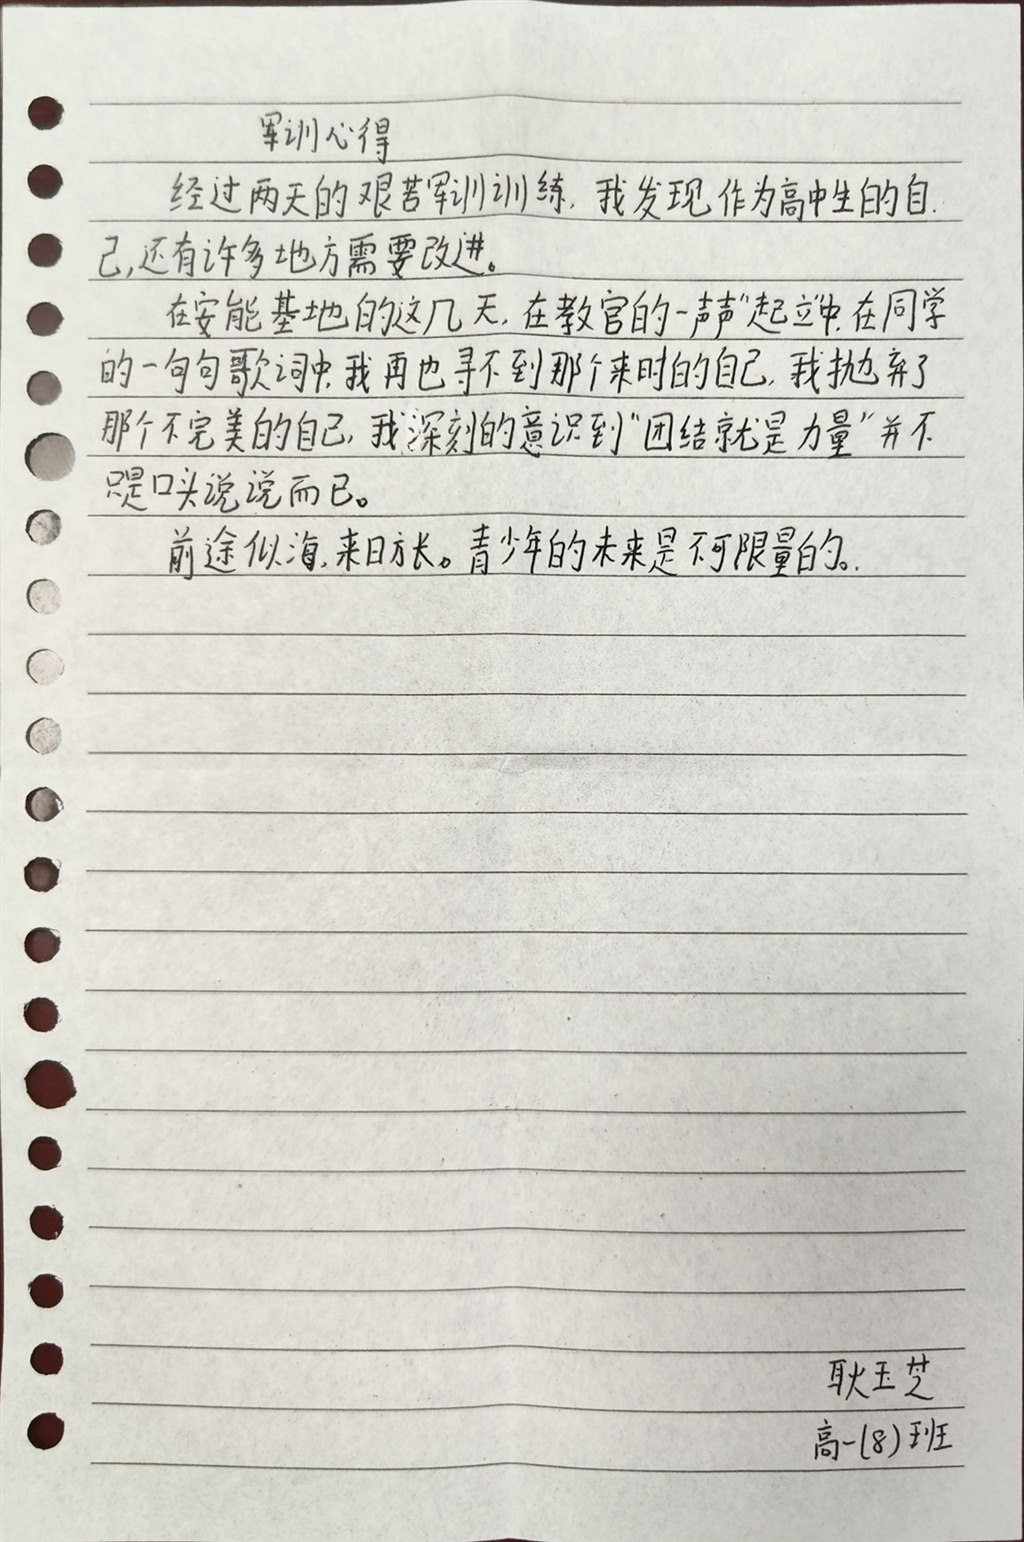 军训心得
经过两天的艰苦军训训练，我发现作为高中生的自
己，还有许多地方需要改进。
在安能基地的这几天，在教官的一声声“起立”中，在同学
的一句句歌词中，我再也寻不到那个来时的自己，我抛弃了
那个不完美的自己，我深刻的意识到“团结就是力量”并不
只是口头说说而已。
前途似海，来日方长。青少年的未来是不可限量的。
耿玉芝
高一(8)班